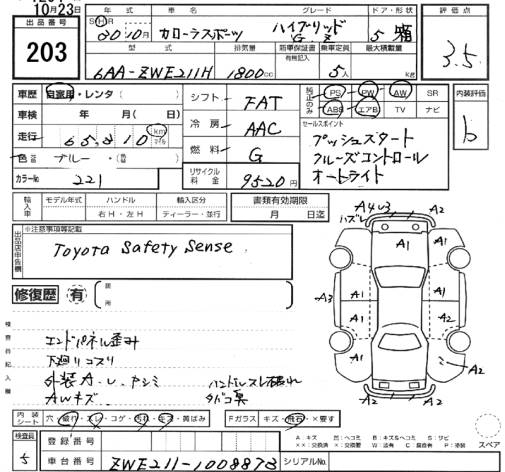 10月23日
出品番号 203
年式 車名 グレード ドア・形状 評価点
S・H 30年10月 カローラスポーツ ハイブリッド G Z 5 箱 3.5
型式 排気量 新車保証書 有無記入 乗車定員 最大積載量
6AA-ZWE211H 1800cc 5人 kg
車歴 自家用・レンタ( ) シフト FAT 純正のみ PS PW AW SR 内装評価
ABS エアB TV ナビ b
車検 年 月( 日) 冷房 AAC セールスポイント
プッシュスタート
走行 65,810 km マイル 燃料 G クルーズコントロール
色 ブルー・( ) リサイクル料金 9520円 オートライト
カラーNo 221
輸入車 モデル年式 ハンドル 輸入区分 書類有効期限
右H・左H ディーラー・並行 月 日迄
出品店申告欄 ※注意事項等記載
Toyota Safety Sense
修復歴 有 箇所
検査員記入欄
エンドパネル歪み
下廻りコスリ
外装A.U.
AWキズ
A4 U3
ハズレ
A2
A1
A1
A2
A3
A1
A1
A2
A1
A1
A2
A2
内装シート 穴・破れ・スレ・コゲ・汚れ・キズ・黄ばみ Fガラス キズ・飛石・×要す
検査員 5 登録番号
A:キズ U:凹ミ B:キズ&ヘコミ S:サビ
××:交換済 ×:交換要 W:波有 C:腐食有 P:塗装 スペア
車台番号 ZWE211-1008873 シリアルNo.